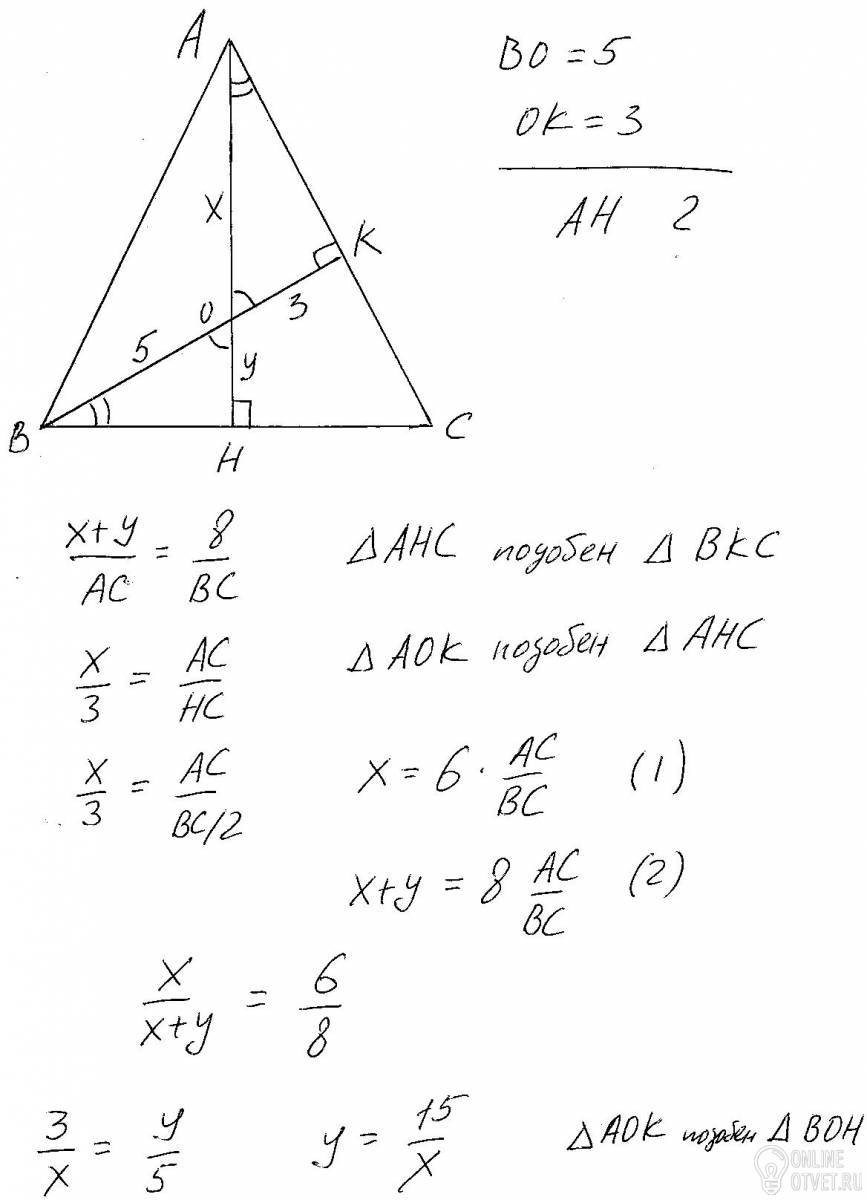 A
BO = 5
OK = 3
AH 2
x
K
O
3
5
y
B
H
C
x+y/AC = 8/BC ΔAHC подобен ΔBKC
x/3 = AC/HC ΔAOK подобен ΔAHC
x/3 = AC/BC/2 x = 6 · AC/BC (1)
x+y = 8 AC/BC (2)
x/x+y = 6/8
3/x = y/5 y = 15/x ΔAOK подобен ΔBOH
ONLINE
OTVET.RU